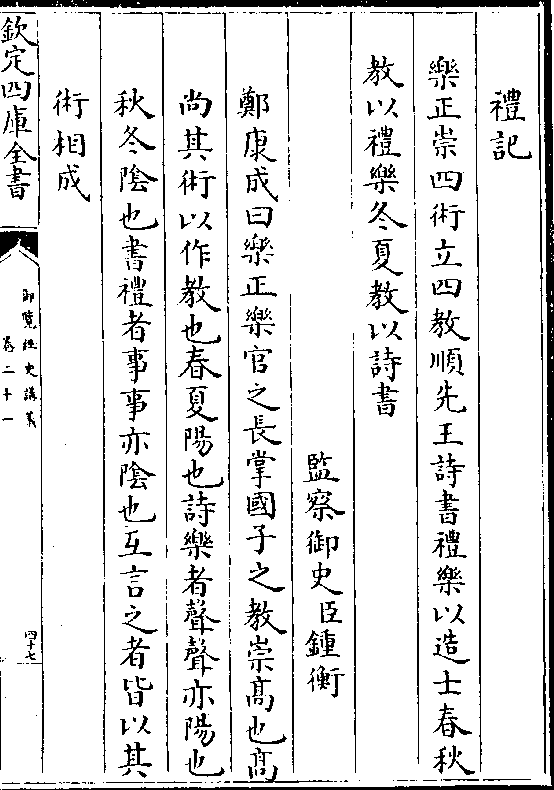 禮記
樂正崇四術立四教順先王詩書禮樂以造士春秋
教以禮樂冬夏教以詩書
監察御史臣鍾衡
鄭康成曰樂正樂官之長掌國子之教崇髙也髙
尚其術以作教也春夏陽也詩樂者聲聲亦陽也
秋冬陰也書禮者事事亦陰也互言之者皆以其
術相成
欽定四庫全書
御覽經史講義
卷二十一
四十七